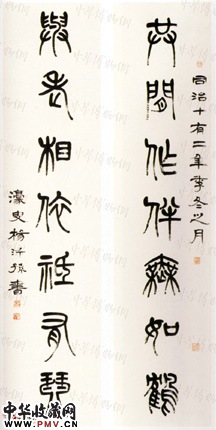 同治十有二年季冬之月
共閒作伴無如鶴
與老相依祇有琴
濠叟楊沂孫書
中华收藏网
WWW.PMV.CN